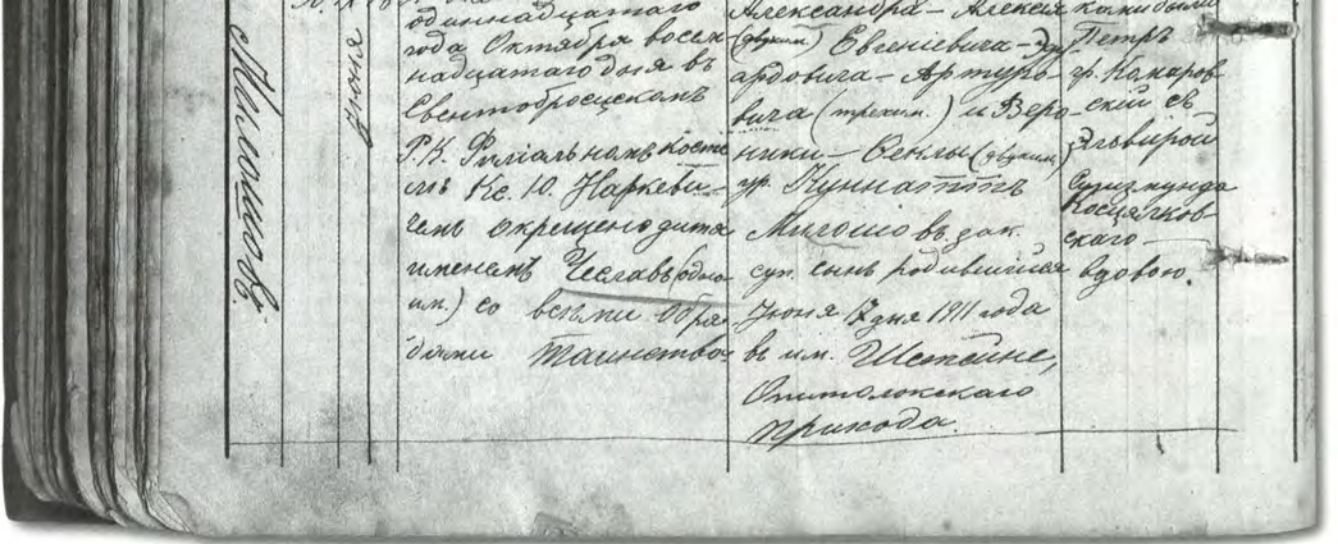 Милошовъ.
Июня
одиннадцатаго
года Октября восем-
надцатаго дня въ
Свентобросцскомъ
Р. К. Филіальномъ косте
лѣ Кс. Ю. Наркеви-
чемъ окрещено дитя
именемъ Чеславъ (одно
им.) со всѣми обря
дами таинства.
Александра - Алексѣя
(двуим.) Евгеніевича - Эду
ардовича - Артуро-
вича (трехим.) и Веро-
ники - Феклы (двуим.)
ур. Куннаттъ
Милошо въ зак.
суп. сынъ родившійся
Июня 17 дня 1911 года
въ им. Шетейне,
Опитолокскаго
прихода.
были
Петръ
гр. Комаров
скій съ
Эльвирой
Сигизмунда
Косцялков-
скаго
вдовою.